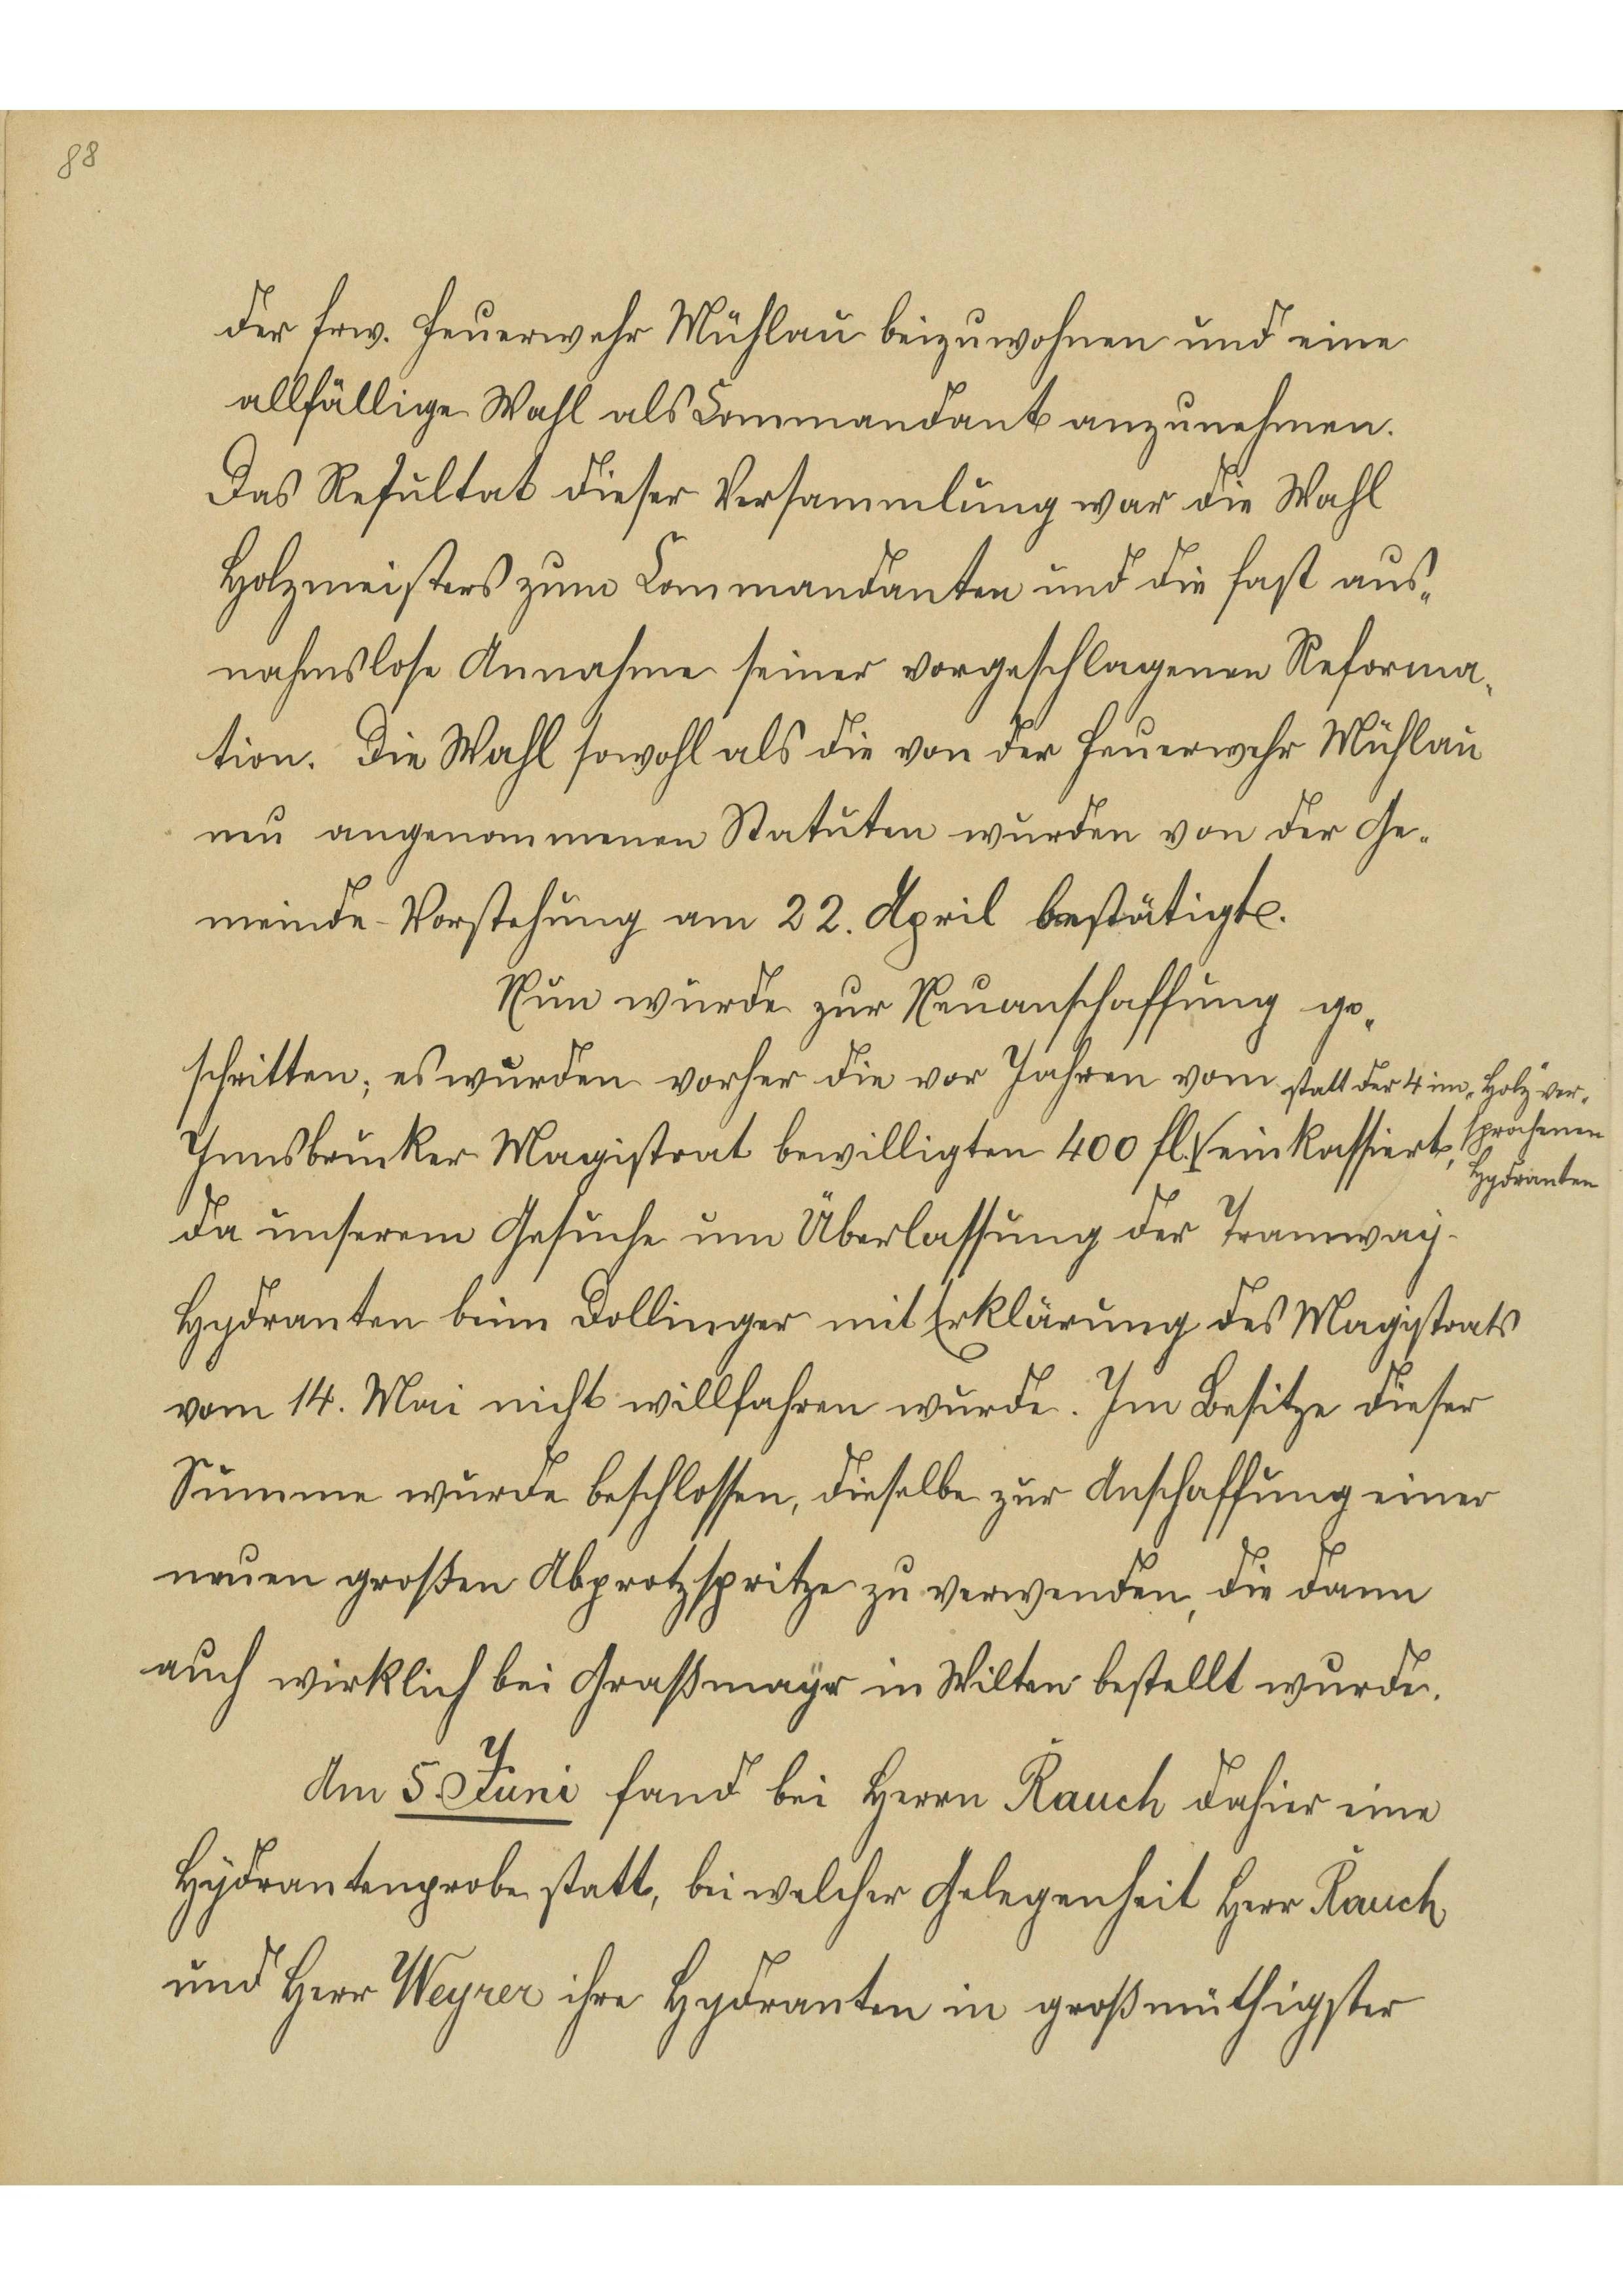 88
der frw. Feuerwehr Mühlau beizuwohnen und eine
allfällige Wahl als Commandant anzunehmen.
Das Resultat dieser Versammlung war die Wahl
Holzmeisters zum Commandanten und die fast aus-
nahmslose Annahme seiner vorgeschlagenen Reforma-
tion. Die Wahl sowohl als die von der Feuerwehr Mühlau
neu angenommenen Statuten wurden von der Ge-
meinde-Vorstehung am 22. April bestätigt.
Nun wurde zur Neuanschaffung ge-
schritten; es wurden vorher die vor Jahren vom
Innsbrucker Magistrat bewilligten 400 fl. √ einkassiert,
statt der 4 im „Holz" ver-
sprochenen
Hydranten
da unserem Gesuche um Überlassung der Tramway-
Hydranten beim Dollinger mit Erklärung des Magistrats
vom 14. Mai nicht willfahren wurde. Im Besitze dieser
Summe wurde beschlossen, dieselbe zur Anschaffung einer
neuen großen Abprotzspritze zu verwenden, die dann
auch wirklich bei Graßmayr in Wilten bestellt wurde.
Am 5. Juni fand bei Herrn Rauch dahier eine
Hydrantenprobe statt, bei welcher Gelegenheit Herr Rauch
und Herr Weyrer ihre Hydranten in großmüthigster